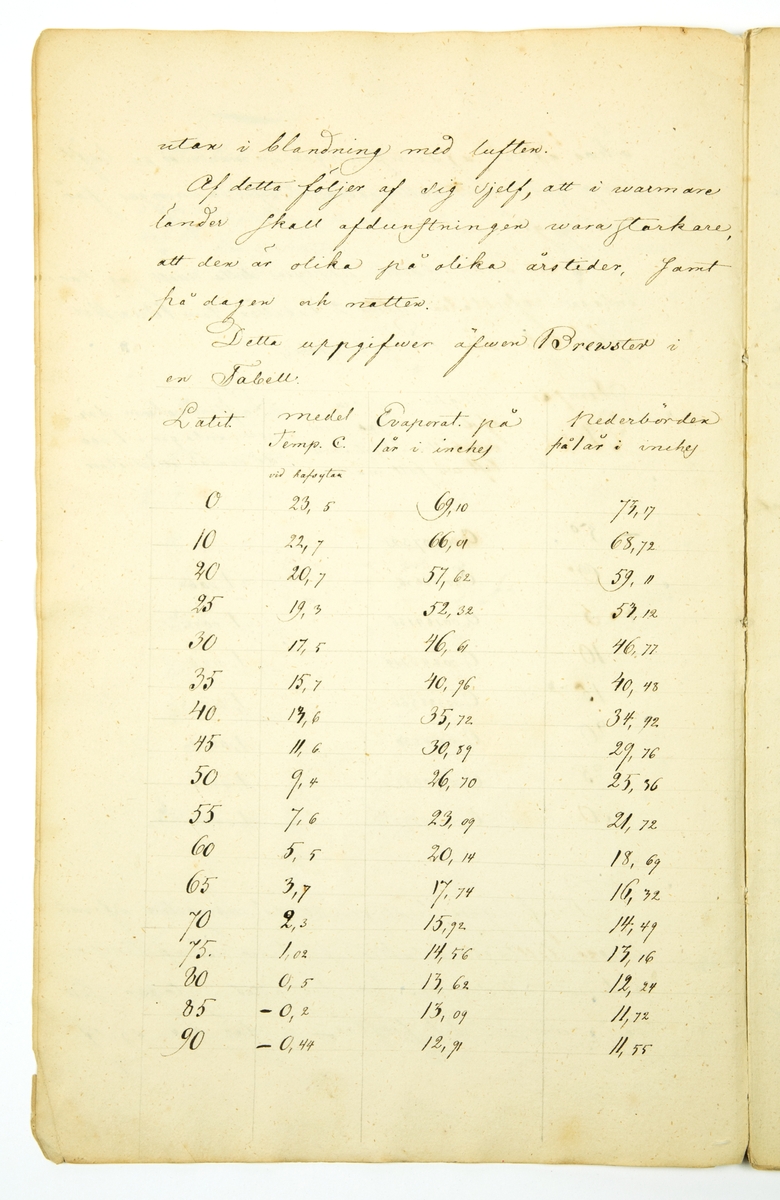 utan i blandning med luften.
Af detta följer af sig sjelf, att i warmare
länder skall afdunstningen wara starkare,
att den är olika på olika årstider, samt
på dagen och natten.
Detta uppgifwer äfwen Brewster i
en Tabell.
Latit. medel Evaporat. på Nederbörden
Temp. C. 1 år i inches på 1 år i inches
vid hafsytan
0 23,5 69,10 73,17
10 22,7 66,01 68,72
20 20,7 57,62 59,11
25 19,3 52,32 53,12
30 17,5 46,61 46,77
35 15,7 40,96 40,48
40. 13,6 35,72 34,92
45 11,6 30,89 29,76
50 9,4 26,70 25,36
55 7,6 23,09 21,72
60 5,5 20,14 18,69
65 3,7 17,74 16,32
70 2,3 15,92 14,49
75. 1,02 14,56 13,16
80 0,5 13,62 12,24
85 -0,2 13,09 11,72
90 -0,44 12,91 11,55